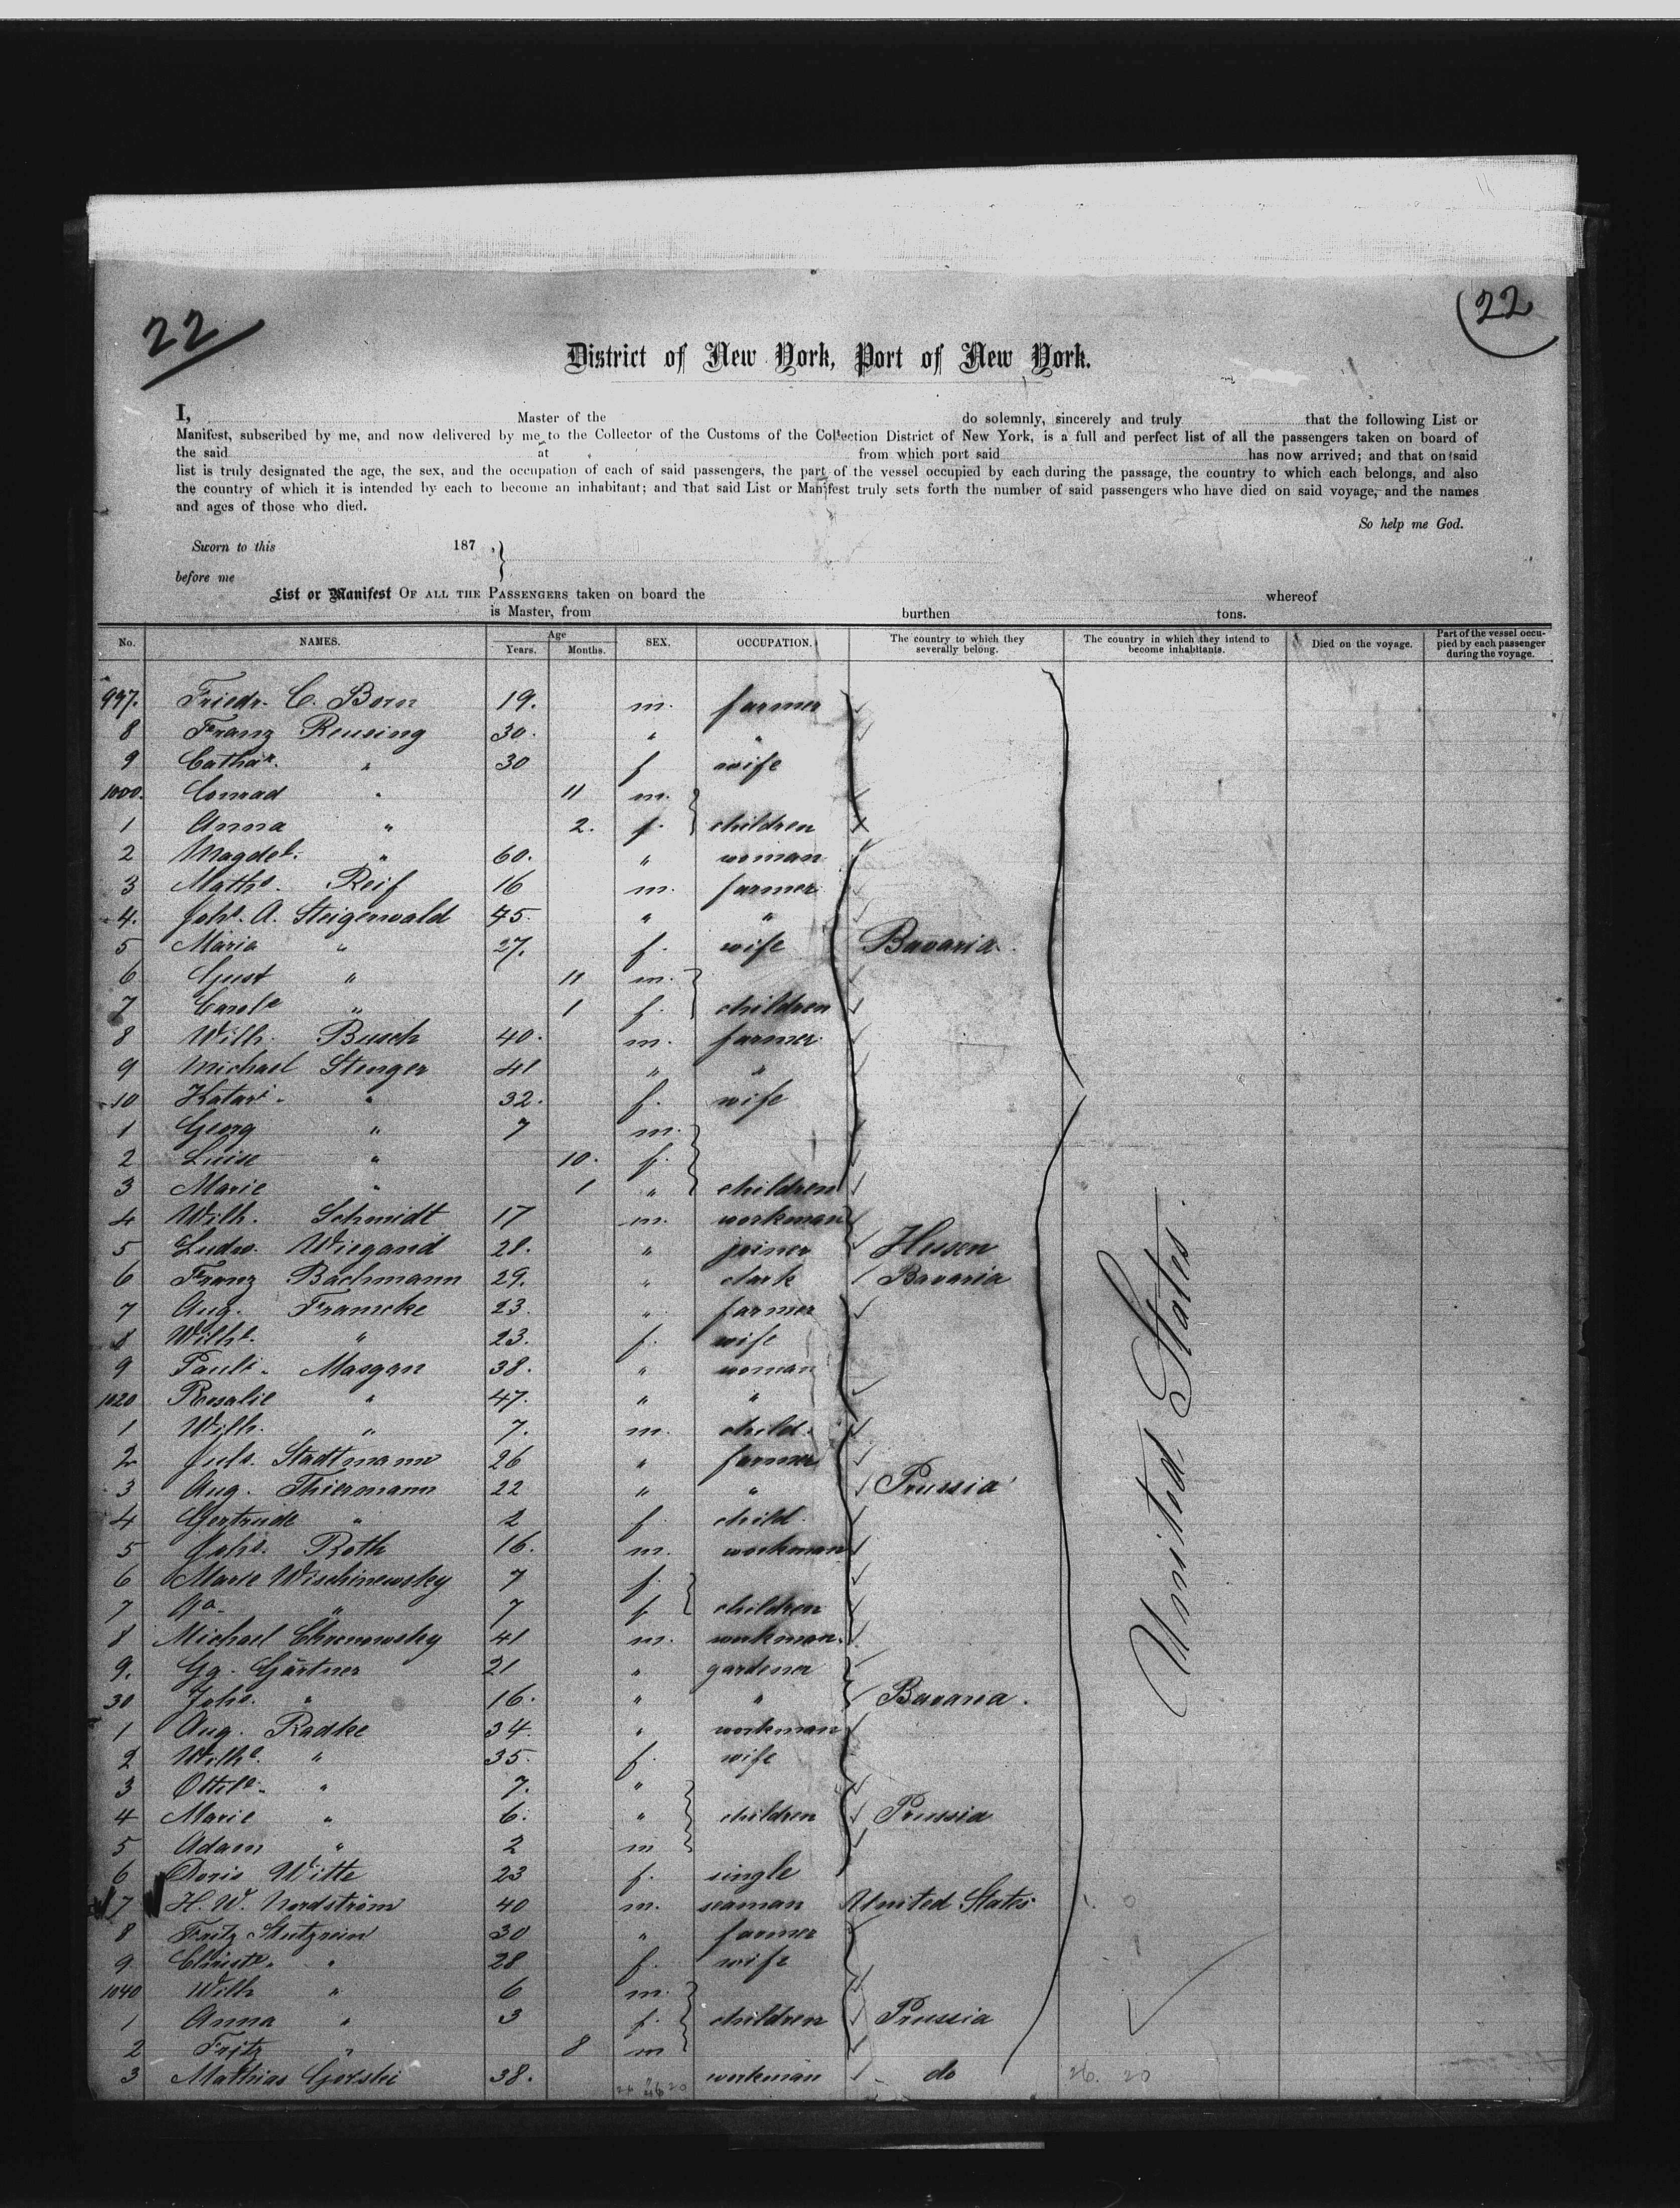 22
(22
District of New York, Port of New York.
I, Master of the do solemnly, sincerely and truly that the following List or
Manifest, subscribed by me, and now delivered by me to the Collector of the Customs of the Collection District of New York, is a full and perfect list of all the passengers taken on board of
the said at from which port said has now arrived; and that on said
list is truly designated the age, the sex, and the occupation of each of said passengers, the part of the vessel occupied by each during the passage, the country to which each belongs, and also
the country of which it is intended by each to become an inhabitant; and that said List or Manifest truly sets forth the number of said passengers who have died on said voyage, and the names
and ages of those who died.
So help me God.
Sworn to this 187 ,
before me
List or Manifest OF ALL THE PASSENGERS taken on board the whereof
is Master, from burthen tons.
No. NAMES. Age Years. Months. SEX. OCCUPATION. The country to which they severally belong. The country in which they intend to become inhabitants. Died on the voyage. Part of the vessel occupied by each passenger during the voyage.
997. Friedr. C. Born 19. m. farmer
8 Franz Reusing 30. " "
9 Cathar. " 30 f wife
1000. Conrad " 11 m.
1 Anna " 2. f. children
2 Magdel. " 60. " woman
3 Maths. Reif 16 m. farmer
4. Johs. A. Steigerwald 45. " "
5 Maria " 27. f. wife Bavaria.
6 Gust " 11 m.
7 Carole " 1 f. children
8 Wilh. Busch 40. m. farmer
9 Michael Stenger 41 " "
10 Katari. " 32. f. wife
1 Georg " 7 m.
2 Luise " 10. f.
3 Marie " 1 " children
4 Wilh. Schmidt 17 m. workman
5 Ludw. Wiegand 28. " joiner Hessen
6 Franz Bachmann 29. " clark Bavaria
7 Aug. Francke 23. " farmer
8 Wilhe. " 23. f. wife
9 Pauli. Masgan 38. " woman
1020 Rosalie " 47. " "
1 Wilh. " 7. m. child.
2 Juls. Stadtmann 26 " farmer
3 Aug. Thiermann 22 " " Prussia
4 Gertrude " 2 f. child.
5 Johs. Roth 16. m. workman
6 Marie Wischinewsky 7 f.
7 " 7 f children
8 Michael Chronowsky 41 m. workman.
9. Gg. Gärtner 21 " gardener
30 Johs. " 16. " " Bavaria.
1 Aug. Radke 34. " workman
2 Wilhe. " 35. f. wife
3 Ottile. " 7. "
4 Marie " 6. " children Prussia
5 Adam " 2 m
6 Doris Witte 23 f. single
7 H. W. Nordström 40 m. seaman United States
8 Fritz Stutzrein 30 " farmer
9 Christe. " 28 f. wife
1040 Wilh " 6 m.
1 Anna " 3 f. children Prussia
2 Fritz " 8 m
3 Mathias Gorski 38. " workman do
United States.
26. 20